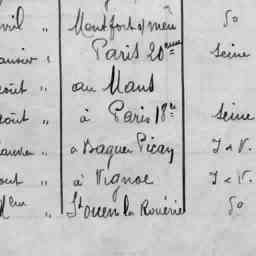 vril " Montfort s/ meu do
anvier " Paris 20eme Seine
août " au Mans
août " à Paris 18e Seine
" à Baguer Pican I & V.
out " à Vignoc I & V.
" St Ouen la Rouërie do